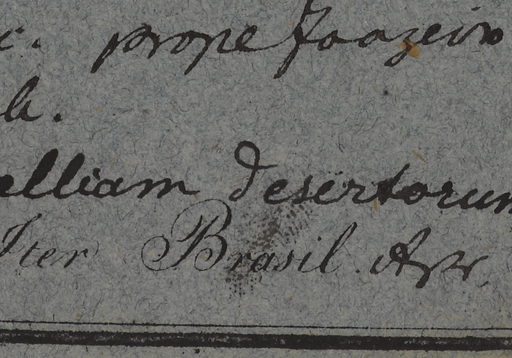 c. prope Joazeiro
h.
elliam desertorum
Iter Brasil. Apr.